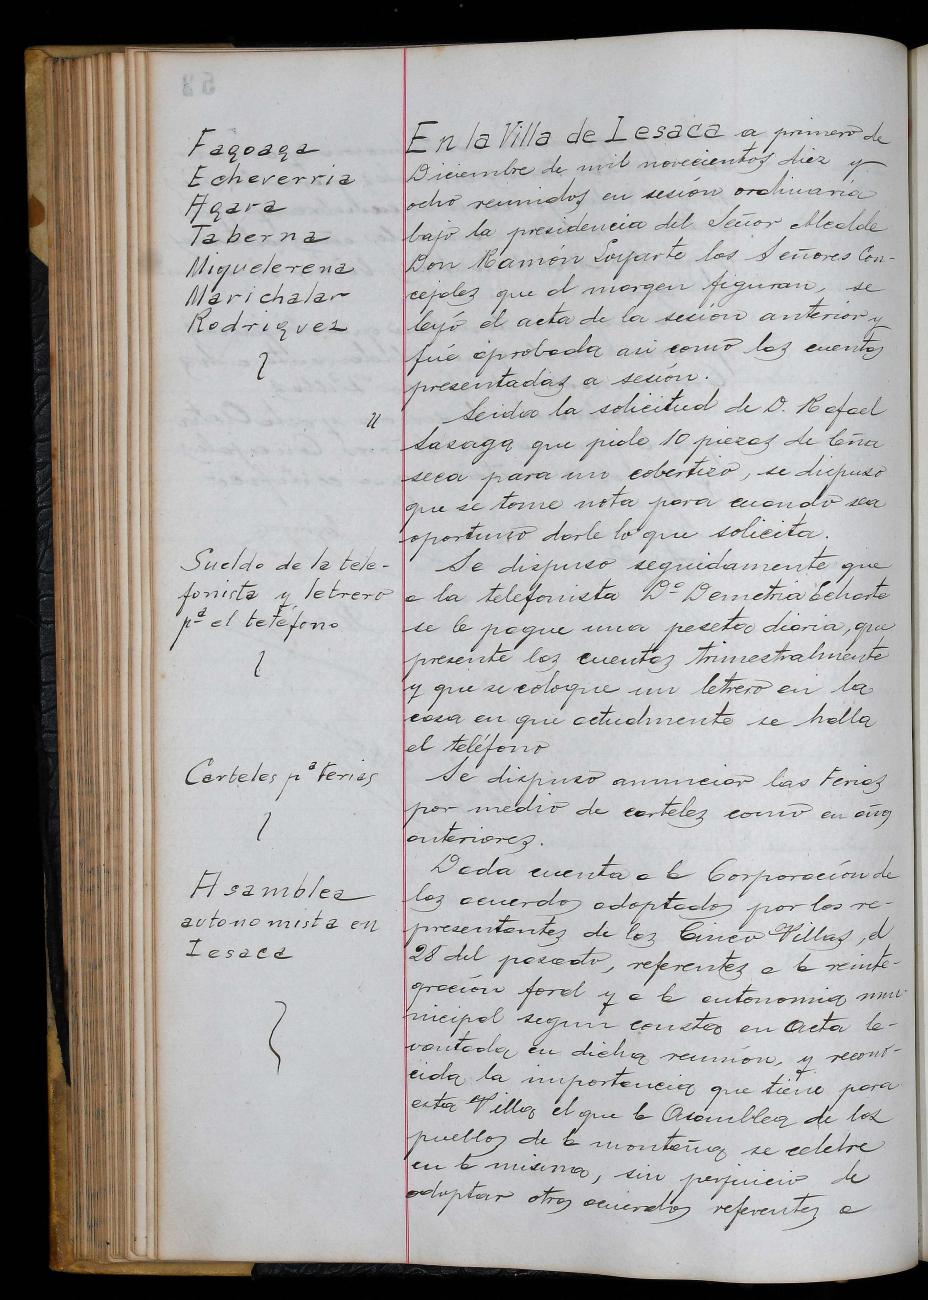 Fagoaga
Echeverria
Agara
Taberna
Miguelerena
Marichalar
Rodriguez
En la Villa de Lesaca a primero de
Diciembre de mil novecientos diez y
ocho reunidos en sesión ordinaria
bajo la presidencia del Señor Alcalde
Don Ramón Loyarte los Señores Con-
cejales que al margen figuran, se
leyó el acta de la sesión anterior y
fué aprobada asi como las cuentas
presentadas a sesión.
"
Leida la solicitud de D. Rafael
Sasoaga que pide 10 piezas de leña
seca para un cobertizo, se dispuso
que se tome nota para cuando sea
oportuno darle lo que solicita.
Sueldo de la tele-
fonista y letrero
pª el teléfono
Se dispuso seguidamente que
a la telefonista Dª Demetria Echarte
se le pague una peseta diaria, que
presente las cuentas trimestralmente
y que se coloque un letrero en la
casa en que actualmente se halla
el teléfono
Carteles pª Ferias
Se dispuso anunciar las Ferias
por medio de carteles como en años
anteriores.
Asamblea
autonomista en
Lesaca
Dada cuenta a la Corporación de
los acuerdos adoptados por los re-
presentantes de las Cinco Villas, el
28 del pasado, referentes a la reinte-
gración foral y a la autonomia mu-
nicipal segun consta en Acta le-
vantada en dicha reunión, y recono-
cida la importancia que tiene para
esta Villa el que la Asamblea de los
pueblos de la montaña se celebre
en la misma, sin perjuicio de
adoptar otros acuerdos referentes a